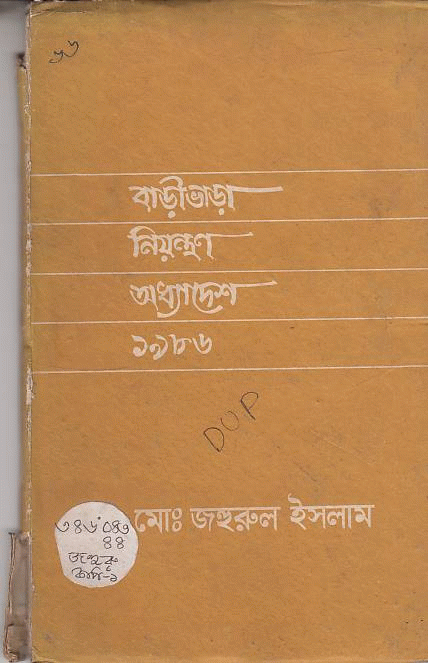 ১৬
বাড়ীভাড়া
নিয়ন্ত্রণ
অধ্যাদেশ
১৯৮৬
DUP
মোঃ জহুরুল ইসলাম
৩৪৬.০৪৩
৪৪
জহুরু
কপি-১